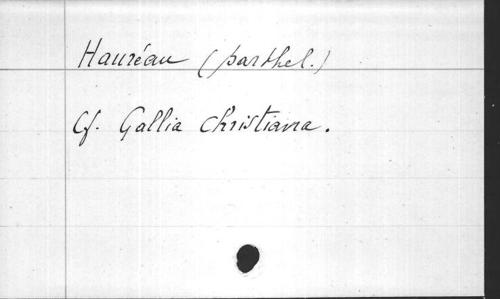 Hauréau (barthel.)
Cf. Gallia Christiana.